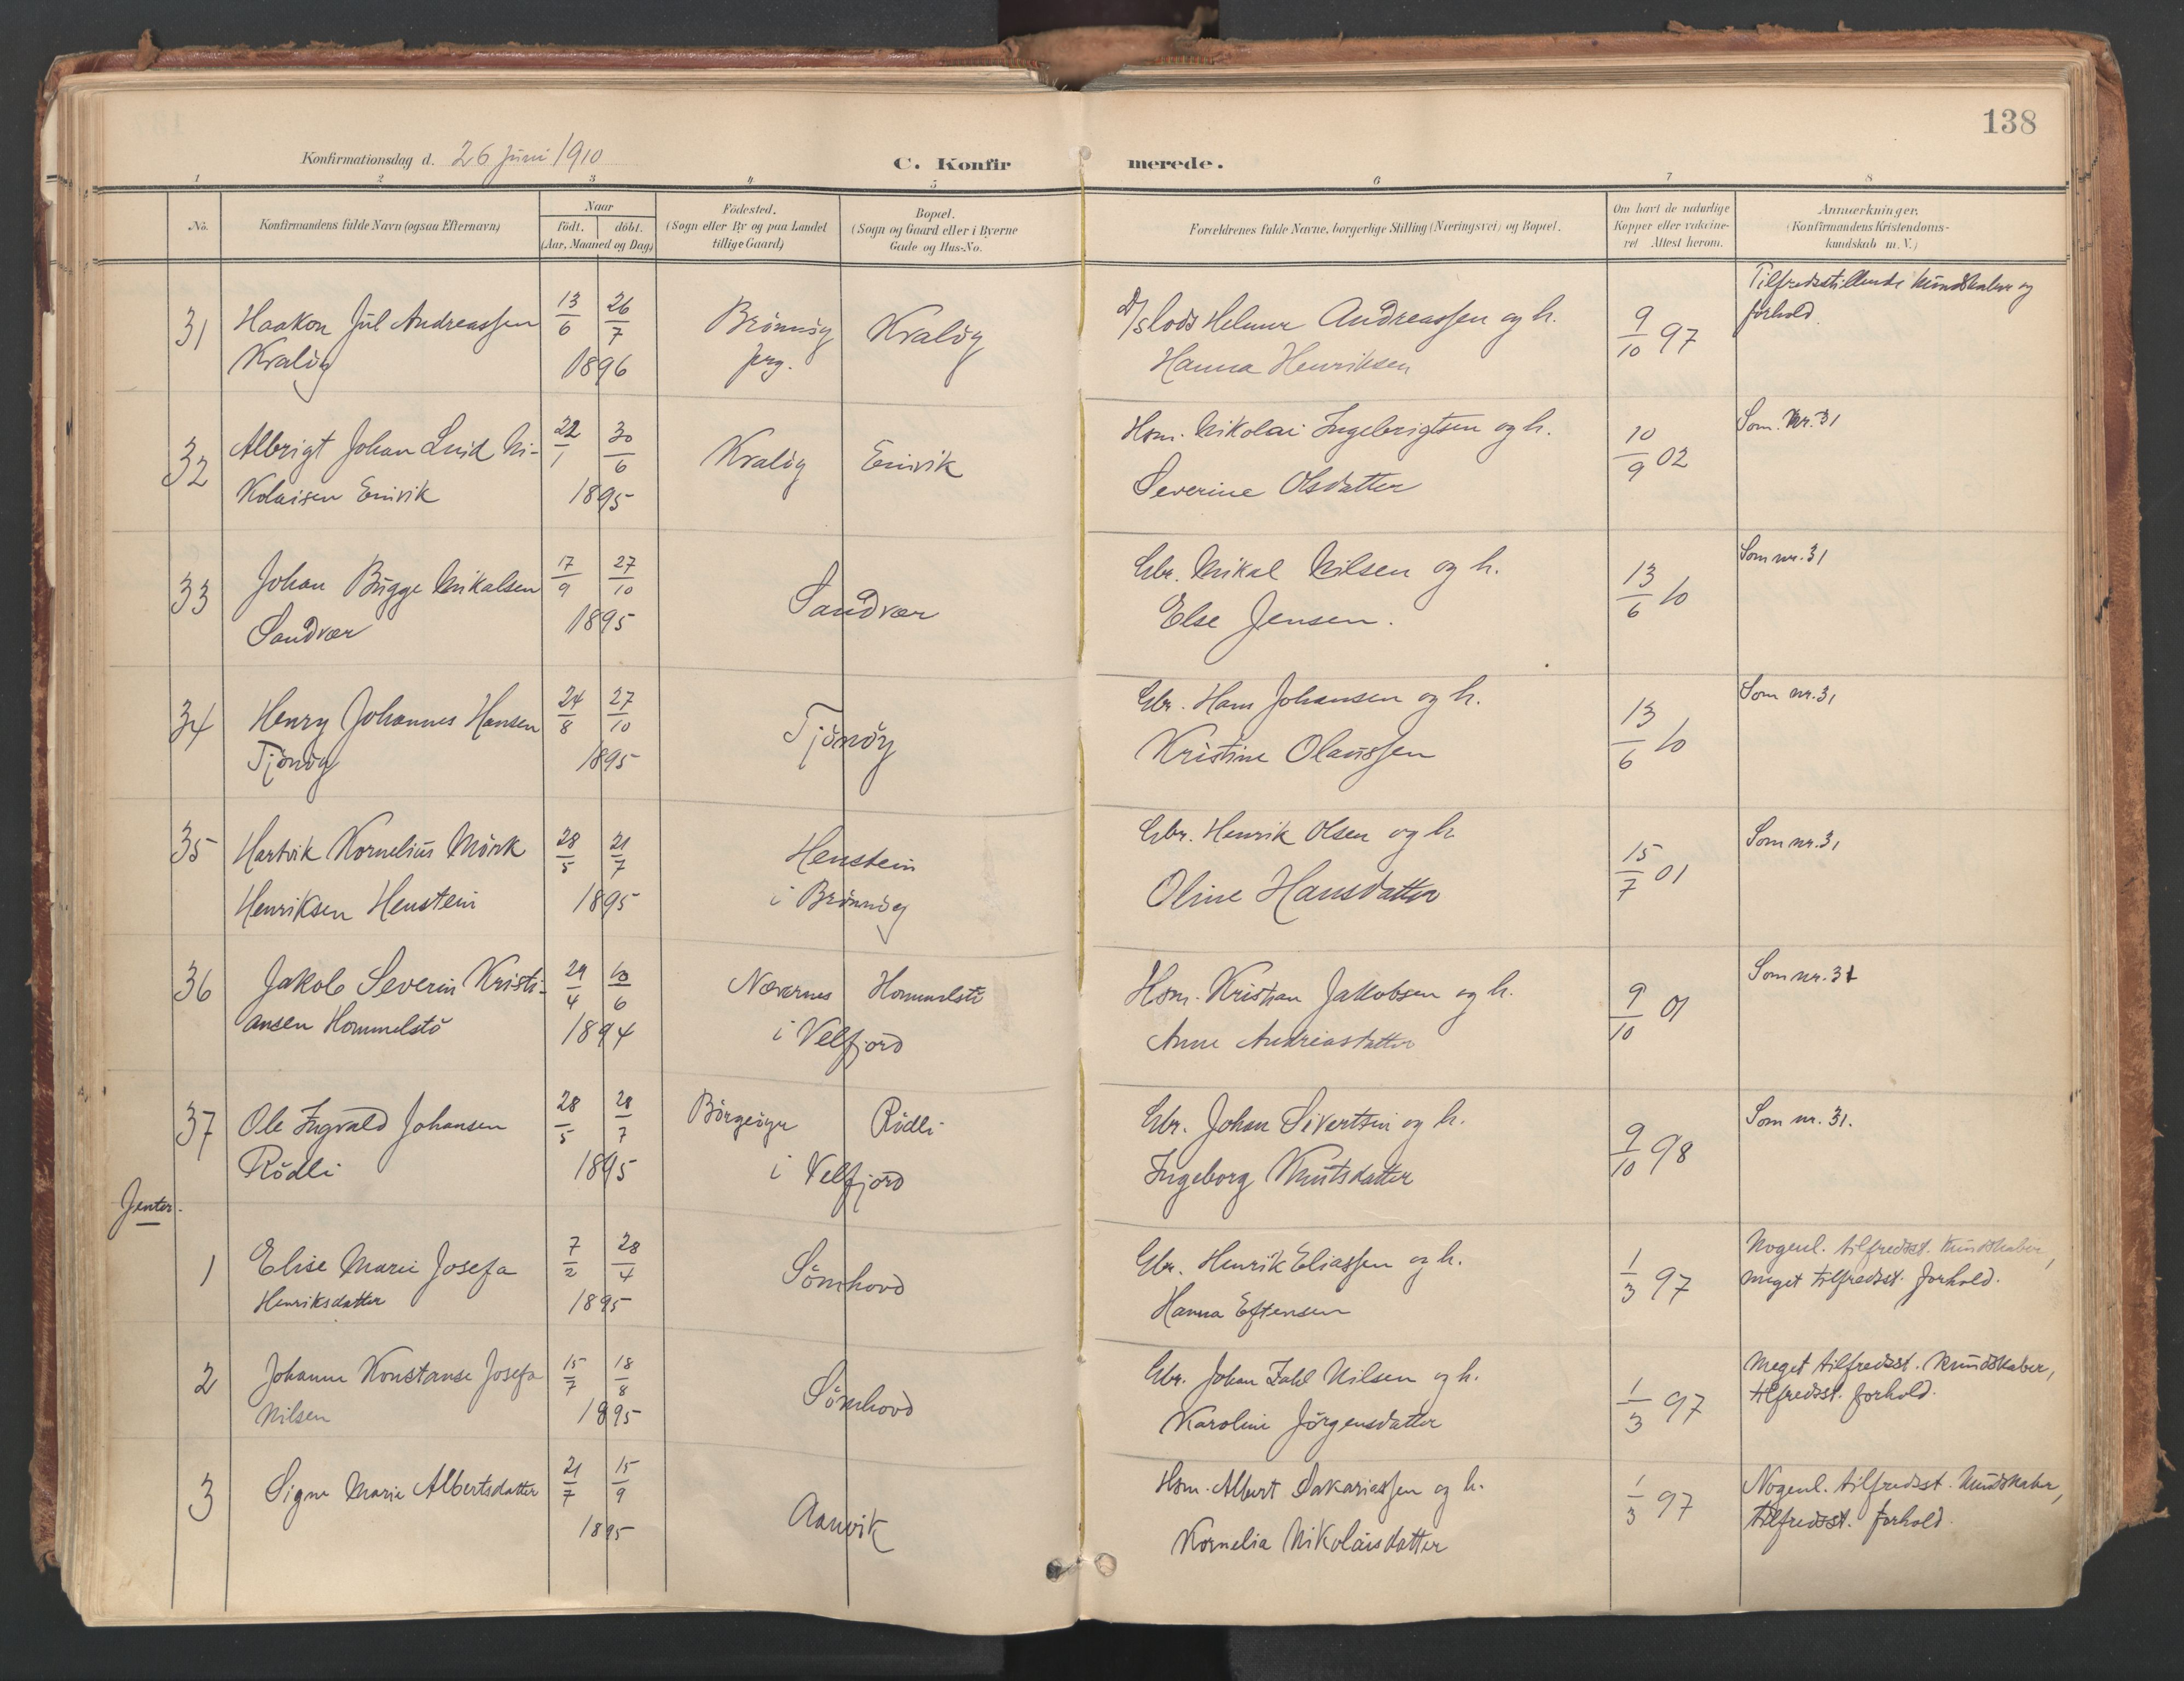 138
Konfirmationsdag d. 26 Juni 1910
C. Konfirmerede.
1 2 3 4 5 6 7 8
No.
Konfirmandens fulde Navn (ogsaa Efternavn)
Naar
födt. döbt.
(Aar, Maaned og Dag)
Födested.
(Sogn eller By og paa Landet
tillige Gaard)
Bopæl.
(Sogn og Gaard eller i Byerne
Gade og Hus-No.
Forældrenes fulde Navne, borgerlige Stilling (Næringsvei) og Bopæl.
Om havt de naturlige
Kopper eller vaccine-
ret Attest herom.
Anmærkninger.
(Konfirmandens Kristendoms-
kundskab m. V.)
31 Haakon Jul Andreassen 13/6 26/7 Brönnöy Kralöy Helmer Andreassen og h. 9/10 97 Tilfredsstillende kundskaber og
Kralöy 1896 prg. Hanna Henriksen forhold.
32 Albrigt Johan Ni- 22/1 30/6 Kralöy Emvik Hsm. Nikolai Ingebrigtsen og h. 10/9 02 Som Nr. 31
kolaisen Emvik 1895 Severine Olsdatter
33 Johan Bugge Mikalsen 17/9 27/10 Sandvær Gbr. Mikal Nilsen og h. 13/6 10 Som nr. 31
Sandvær 1895 Else Jensen.
34 Henry Johannes Hansen 24/8 27/10 Tjönöy Gbr. Hans Johansen og h. 13/6 10 Som nr. 31
Tjönöy 1895 Kristine Olaussen
35 Hartvik Kornelius Mörk 28/5 21/7 Henstein Gbr. Henrik Olsen og h. 15/7 01 Som nr. 31
Henriksen Henstein 1895 i Brönnöy Oline Hansdatter
36 Jakob Severin Kristi- 29/4 10/6 Nævernes Hommelstö Hsm. Kristian Jakobsen og h. 9/10 01 Som nr. 31
ansen Hommelstö 1894 i Velfjord Anne Andreasdatter
37 Ole Ingvald Johansen 28/5 28/7 Börgeöyr Rödli Gbr. Johan Sivertsen og h. 9/10 98 Som nr. 31.
Rödli 1895 i Velfjord Ingeborg Knutsdatter
Jenter.
1 Elise Marie Josefa 7/2 28/4 Sömhovd Gbr. Henrik Eliassen og h. 1/3 97 Nogenl. tilfredsst. kundskaber,
Henriksdatter 1895 Hanna Eftensen meget tilfredsst. forhold.
2 Johanne Konstanse Josefa 15/7 18/8 Sömhovd Gbr. Johan Zahl Nilsen og h. 1/3 97 Meget tilfredsst. kundskaber,
Nilsen 1895 Karoline Jörgensdatter tilfredsst. forhold.
3 Signe Marie Albertsdatter 21/7 15/9 Aanvik Hsm. Albert Sakariassen og h. 1/3 97 Nogenl. tilfredsst. kundskaber,
1895 Kornelia Nikolaisdatter tilfredsst. forhold.